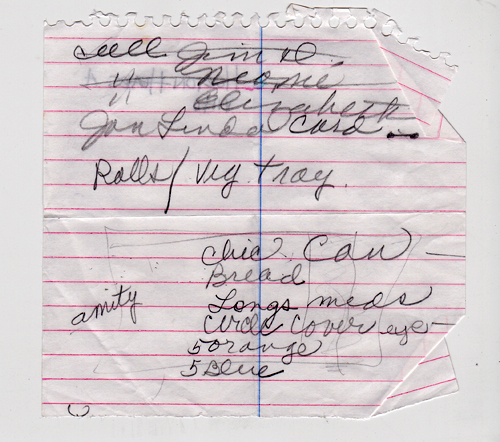 call Jim D.
" Naomi
Elizabeth
Jan Linda Card
Rolls / Veg. tray.
chic. Can
Bread
amity Longs meds
Circle Cover eye
5 orange
5 Blue